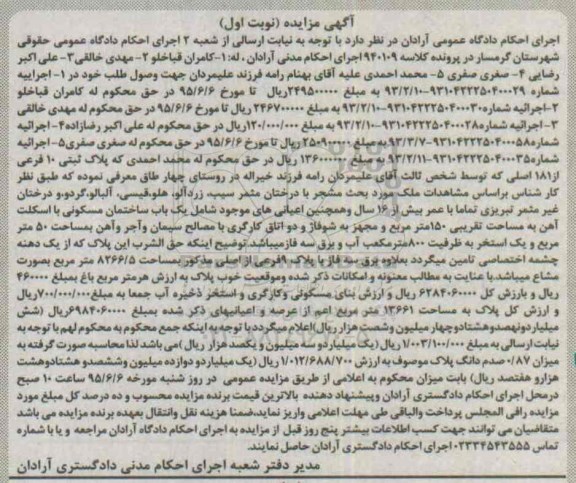 آگهی مزایده (نوبت اول)
اجرای احکام دادگاه عمومی آرادان در نظر دارد با توجه به نیابت ارسالی از شعبه ۲ اجرای احکام دادگاه عمومی حقوقی
شهرستان گرمسار در پرونده کلاسه ۹۴۰۱۰۹ اجرای احکام مدنی آرادان ، له:۱-کامران قباخلو ۲- مهدی خالقی۳- علی اکبر
رضایی ۴- صغری صفری ۵- محمد احمدی علیه آقای بهنام رامه فرزند علیمردان جهت وصول طلب خود در ۱- اجراییه
شماره ۹۳۱۰۴۲۲۲۵۰۴۰۰۰۲۹-۹۳/۲/۱۰ به مبلغ ۲۴۹۵۰۰۰۰۰ریال تا مورخ ۹۵/۶/۶ در حق محکوم له کامران قباخلو
۲-اجرائیه شماره۹۳۱۰۴۲۲۲۵۰۴۰۰۰۳۰-۹۳/۲/۱۰ به مبلغ ۲۴۶۷۰۰۰۰۰ ریال تا مورخ ۹۵/۶/۶ در حق محکوم له مهدی خالقی
۳- اجرائیه شماره۹۳۱۰۴۲۲۲۵۰۴۰۰۰۲۸-۹۳/۲/۱۰ به مبلغ ۱۲۰/۰۰۰/۰۰۰ریال در حق محکوم له علی اکبر رضازاده۴- اجرائیه
شماره۹۳۱۰۴۲۲۲۵۰۴۰۰۰۵۸-۹۳/۳/۷ به مبلغ ۲۵۰۹۰۰۰۰۰ ریال تا مورخ ۹۵/۶/۶ در حق محکوم له صغری صفری۵- اجرائیه
شماره۹۳۱۰۴۲۲۲۵۰۴۰۰۰۳۵-۹۳/۲/۱۱ به مبلغ ۱۳۶۰۰۰۰۰۰ ریال در حق محکوم له محمد احمدی که پلاک ثبتی ۱۰ فرعی
از۱۸۱ اصلی که توسط شخص ثالث آقای علیمردان رامه فرزند خیراله در روستای چهار طاق معرفی نموده که طبق نظر
کار شناس براساس مشاهدات ملک مورد بحث مشجر با درختان مثمر سیب، زردآلو، هلو،قیسی، آلبالو،گردو،و درختان
غیر مثمر تبریزی تماما با عمر بیش از ۱۶ سال وهمچنین اعیانی های موجود شامل یک باب ساختمان مسکونی با اسکلت
آهن به مساحت تقریبی ۱۵۰متر مربع و مجهز به شوفاژ و دو اتاق کارگری با مصالح سیمان وآجر وآهن بمساحت ۵۰ متر
مربع و یک استخر به ظرفیت ۸۰۰مترمکعب آب و برق سه فازمیباشد. توضیح اینکه حق الشرب این پلاک که از یک دهنه
چشمه اختصاصی تامین میگردد بعلاوه برق سه فاز با پلاک ۹فرعی از اصلی مذکور بمساحت ۸۳۶۶/۵ متر مربع بصورت
مشاع میباشد.با عنایت به مطالب معنونه و امکانات ذکر شده وموقعیت خوب پلاک به ارزش هرمتر مربع باغ بمبلغ ۴۶۰۰۰۰
ریال و بارزش کل ۶۲۸۴۰۶۰۰۰۰ ریال و ارزش بنای مسکونی وکارگری و استخر ذخیره آب جمعا به مبلغ۷۰۰/۰۰۰/۰۰۰ریال
و ارزش کل پلاک به مساحت ۱۳۶۶۱ متر مربع اعم از عرصه و اعیانیهای ذکر شده بمبلغ ۶۹۸۴۰۶۰۰۰۰ریال (شش
میلیاردونهصدوهشتادوچهار میلیون وشصت هزار ریال)اعلام میگردد.با توجه به اینکه جمع محکوم به محکوم لهم با توجه به
نیابت ارسالی به مبلغ ۱/۰۰۳/۱۰۰/۰۰۰ ریال (یک میلیاردو سه میلیون و یکصد هزار ریال )می باشد لذا محاسبه صورت گرفته به
میزان ۰/۸۷صدم دانگ پلاک موصوف به ارزش ۱/۰۱۲/۶۸۸/۷۰۰ ریال (یک میلیاردو دوازده میلیون وششصدو هشتادوهشت
هزارو هفتصد ریال) بابت میزان محکوم به اعلامی از طریق مزایده عمومی در روز شنبه مورخه ۹۵/۶/۶ ساعت ۱۰ صبح
درمحل اجرای احکام دادگستری آرادان وپیشنهاد دهنده بالاترین قیمت برنده مزایده محسوب و ده درصد کل مبلغ مورد
مزایده رافی المجلس پرداخت والباقی طی مهلت اعلامی واریز نماید،ضمنا هزینه نقل وانتقال بعهده برنده مزایده می باشد
متقاضیان می توانند جهت کسب اطلاعات بیشتر پنج روز قبل از مزایده به اجرای احکام دادگاه آرادان مراجعه و یا با شماره
تماس ۰۲۳۳۴۵۴۳۵۵۵ اجرای احکام دادگستری آرادان حاصل نمایند.
مدیر دفتر شعبه اجرای احکام مدنی دادگستری آرادان